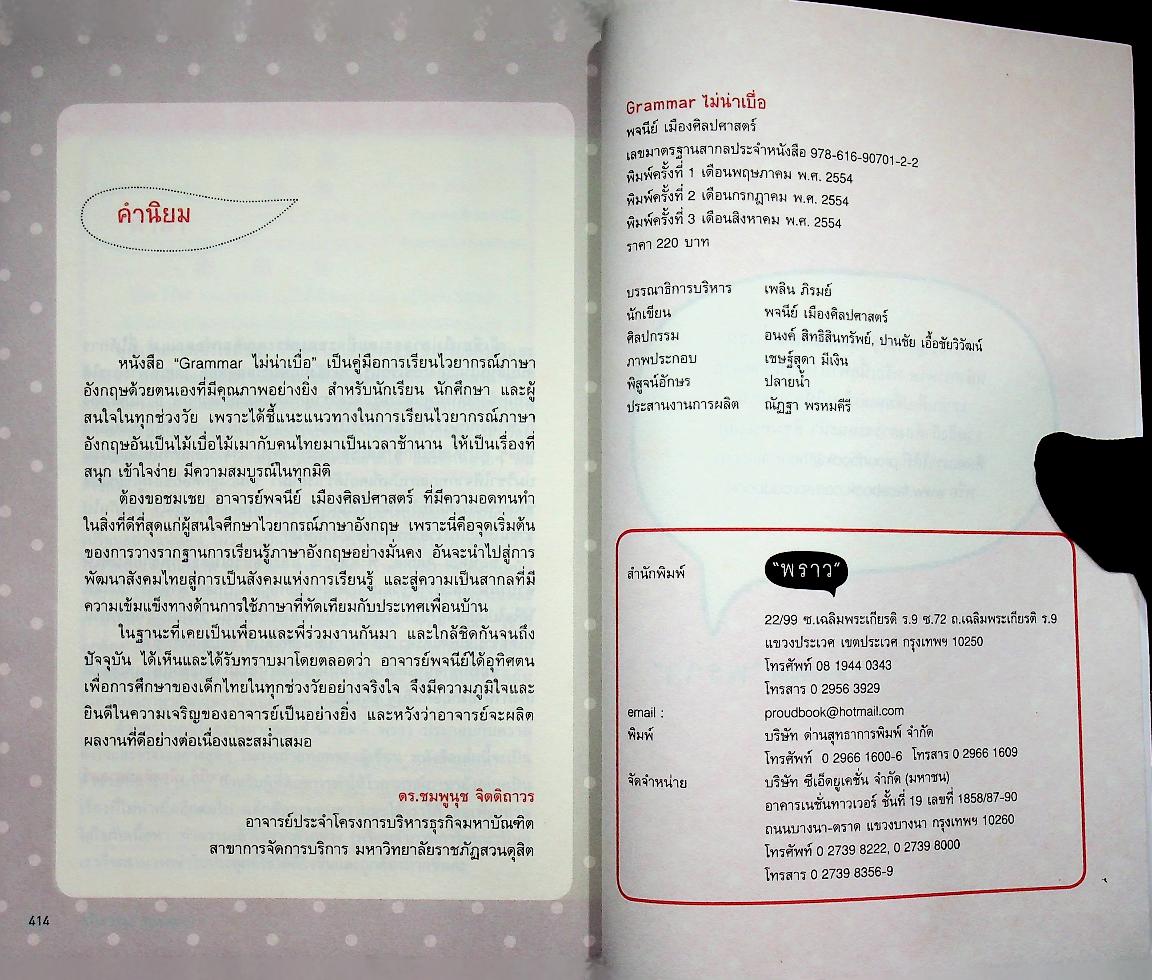 คำนิยม
หนังสือ “Grammar ไม่น่าเบื่อ” เป็นคู่มือการเรียนไวยากรณ์ภาษา
อังกฤษด้วยตนเองที่มีคุณภาพอย่างยิ่ง สำหรับนักเรียน นักศึกษา และผู้
สนใจในทุกช่วงวัย เพราะได้ชี้แนะแนวทางในการเรียนไวยากรณ์ภาษา
อังกฤษอันเป็นไม้เบื่อไม้เมากับคนไทยมาเป็นเวลาช้านาน ให้เป็นเรื่องที่
สนุก เข้าใจง่าย มีความสมบูรณ์ในทุกมิติ
ต้องขอชมเชย อาจารย์พจนีย์ เมืองศิลปศาสตร์ ที่มีความอดทนทำ
ในสิ่งที่ดีที่สุดแก่ผู้สนใจศึกษาไวยากรณ์ภาษาอังกฤษ เพราะนี่คือจุดเริ่มต้น
ของการวางรากฐานการเรียนรู้ภาษาอังกฤษอย่างมั่นคง อันจะนำไปสู่การ
พัฒนาสังคมไทยสู่การเป็นสังคมแห่งการเรียนรู้ และสู่ความเป็นสากลที่มี
ความเข้มแข็งทางด้านการใช้ภาษาที่ทัดเทียมกับประเทศเพื่อนบ้าน
ในฐานะที่เคยเป็นเพื่อนและพี่ร่วมงานกันมา และใกล้ชิดกันจนถึง
ปัจจุบัน ได้เห็นและได้รับทราบมาโดยตลอดว่า อาจารย์พจนีย์ได้อุทิศตน
เพื่อการศึกษาของเด็กไทยในทุกช่วงวัยอย่างจริงใจ จึงมีความภูมิใจและ
ยินดีในความเจริญของอาจารย์เป็นอย่างยิ่ง และหวังว่าอาจารย์จะผลิต
ผลงานที่ดีอย่างต่อเนื่องและสม่ำเสมอ
ดร.ชมพูนุช จิตติถาวร
อาจารย์ประจำโครงการบริหารธุรกิจมหาบัณฑิต
สาขาการจัดการบริการ มหาวิทยาลัยราชภัฏสวนดุสิต
414
Grammar ไม่น่าเบื่อ
พจนีย์ เมืองศิลปศาสตร์
เลขมาตรฐานสากลประจำหนังสือ 978-616-90701-2-2
พิมพ์ครั้งที่ 1 เดือนพฤษภาคม พ.ศ. 2554
พิมพ์ครั้งที่ 2 เดือนกรกฎาคม พ.ศ. 2554
พิมพ์ครั้งที่ 3 เดือนสิงหาคม พ.ศ. 2554
ราคา 220 บาท
บรรณาธิการบริหาร เพลิน ภิรมย์
นักเขียน พจนีย์ เมืองศิลปศาสตร์
ศิลปกรรม อนงค์ สิทธิสินทรัพย์, ปานชัย เอื้อชัยวิวัฒน์
ภาพประกอบ เชษฐ์สุดา มีเงิน
พิสูจน์อักษร ปลายน้ำ
ประสานงานการผลิต ณัฏฐา พรหมคีรี
สำนักพิมพ์ “พราว”
22/99 ซ.เฉลิมพระเกียรติ ร.9 ซ.72 ถ.เฉลิมพระเกียรติ ร.9
แขวงประเวศ เขตประเวศ กรุงเทพฯ 10250
โทรศัพท์ 08 1944 0343
โทรสาร 0 2956 3929
email : proudbook@hotmail.com
พิมพ์ บริษัท ด่านสุทธาการพิมพ์ จำกัด
โทรศัพท์ 0 2966 1600-6 โทรสาร 0 2966 1609
จัดจำหน่าย บริษัท ซีเอ็ดยูเคชั่น จำกัด (มหาชน)
อาคารเนชั่นทาวเวอร์ ชั้นที่ 19 เลขที่ 1858/87-90
ถนนบางนา-ตราด แขวงบางนา กรุงเทพฯ 10260
โทรศัพท์ 0 2739 8222, 0 2739 8000
โทรสาร 0 2739 8356-9